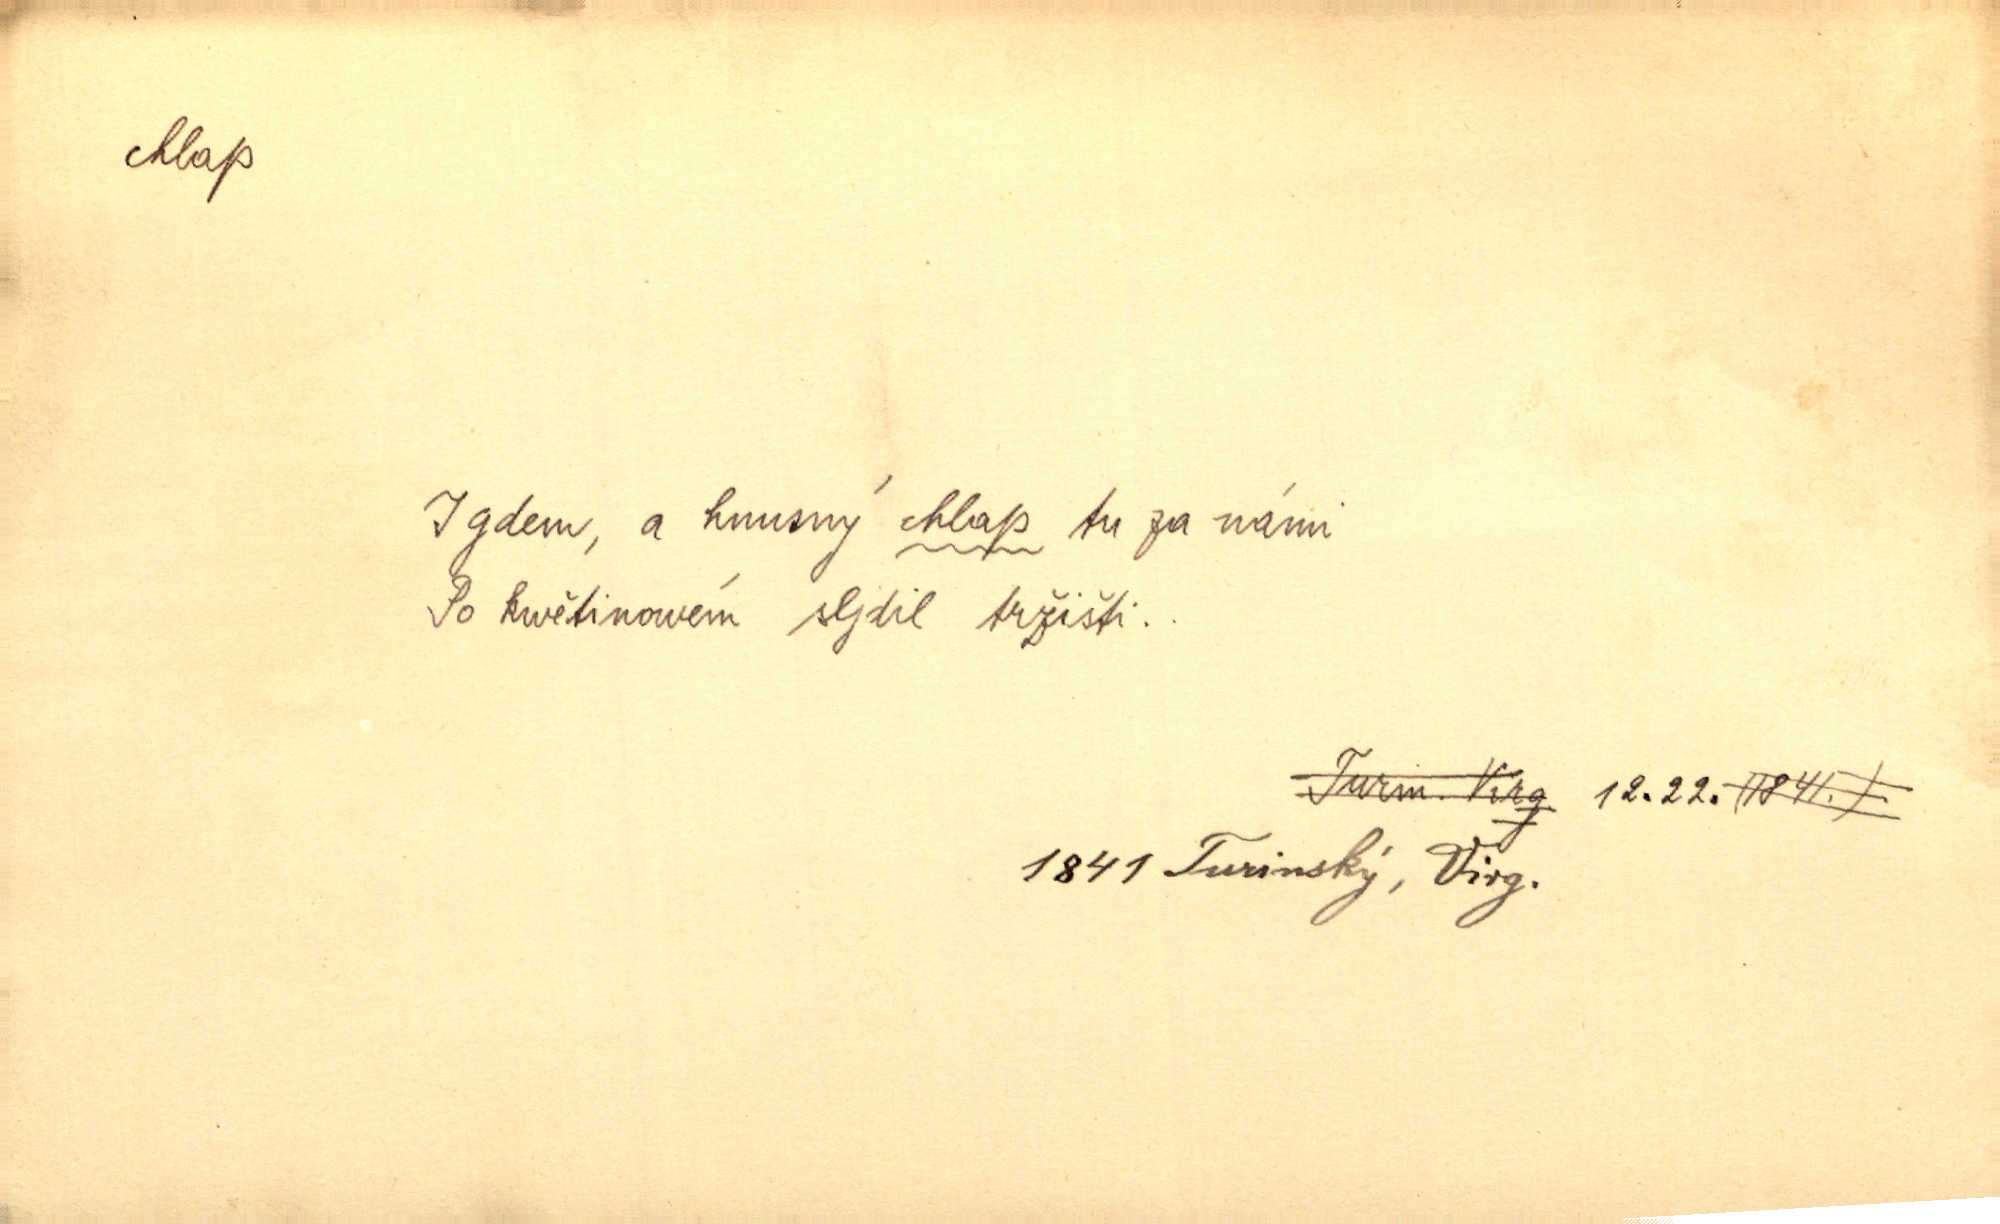 chlap
I gdem, a hnusný chlap tu za námi
Po kwětinowém slgdil tržišti.
Turin. Virg 12.22. (1841.)
1841 Turinský, Virg.